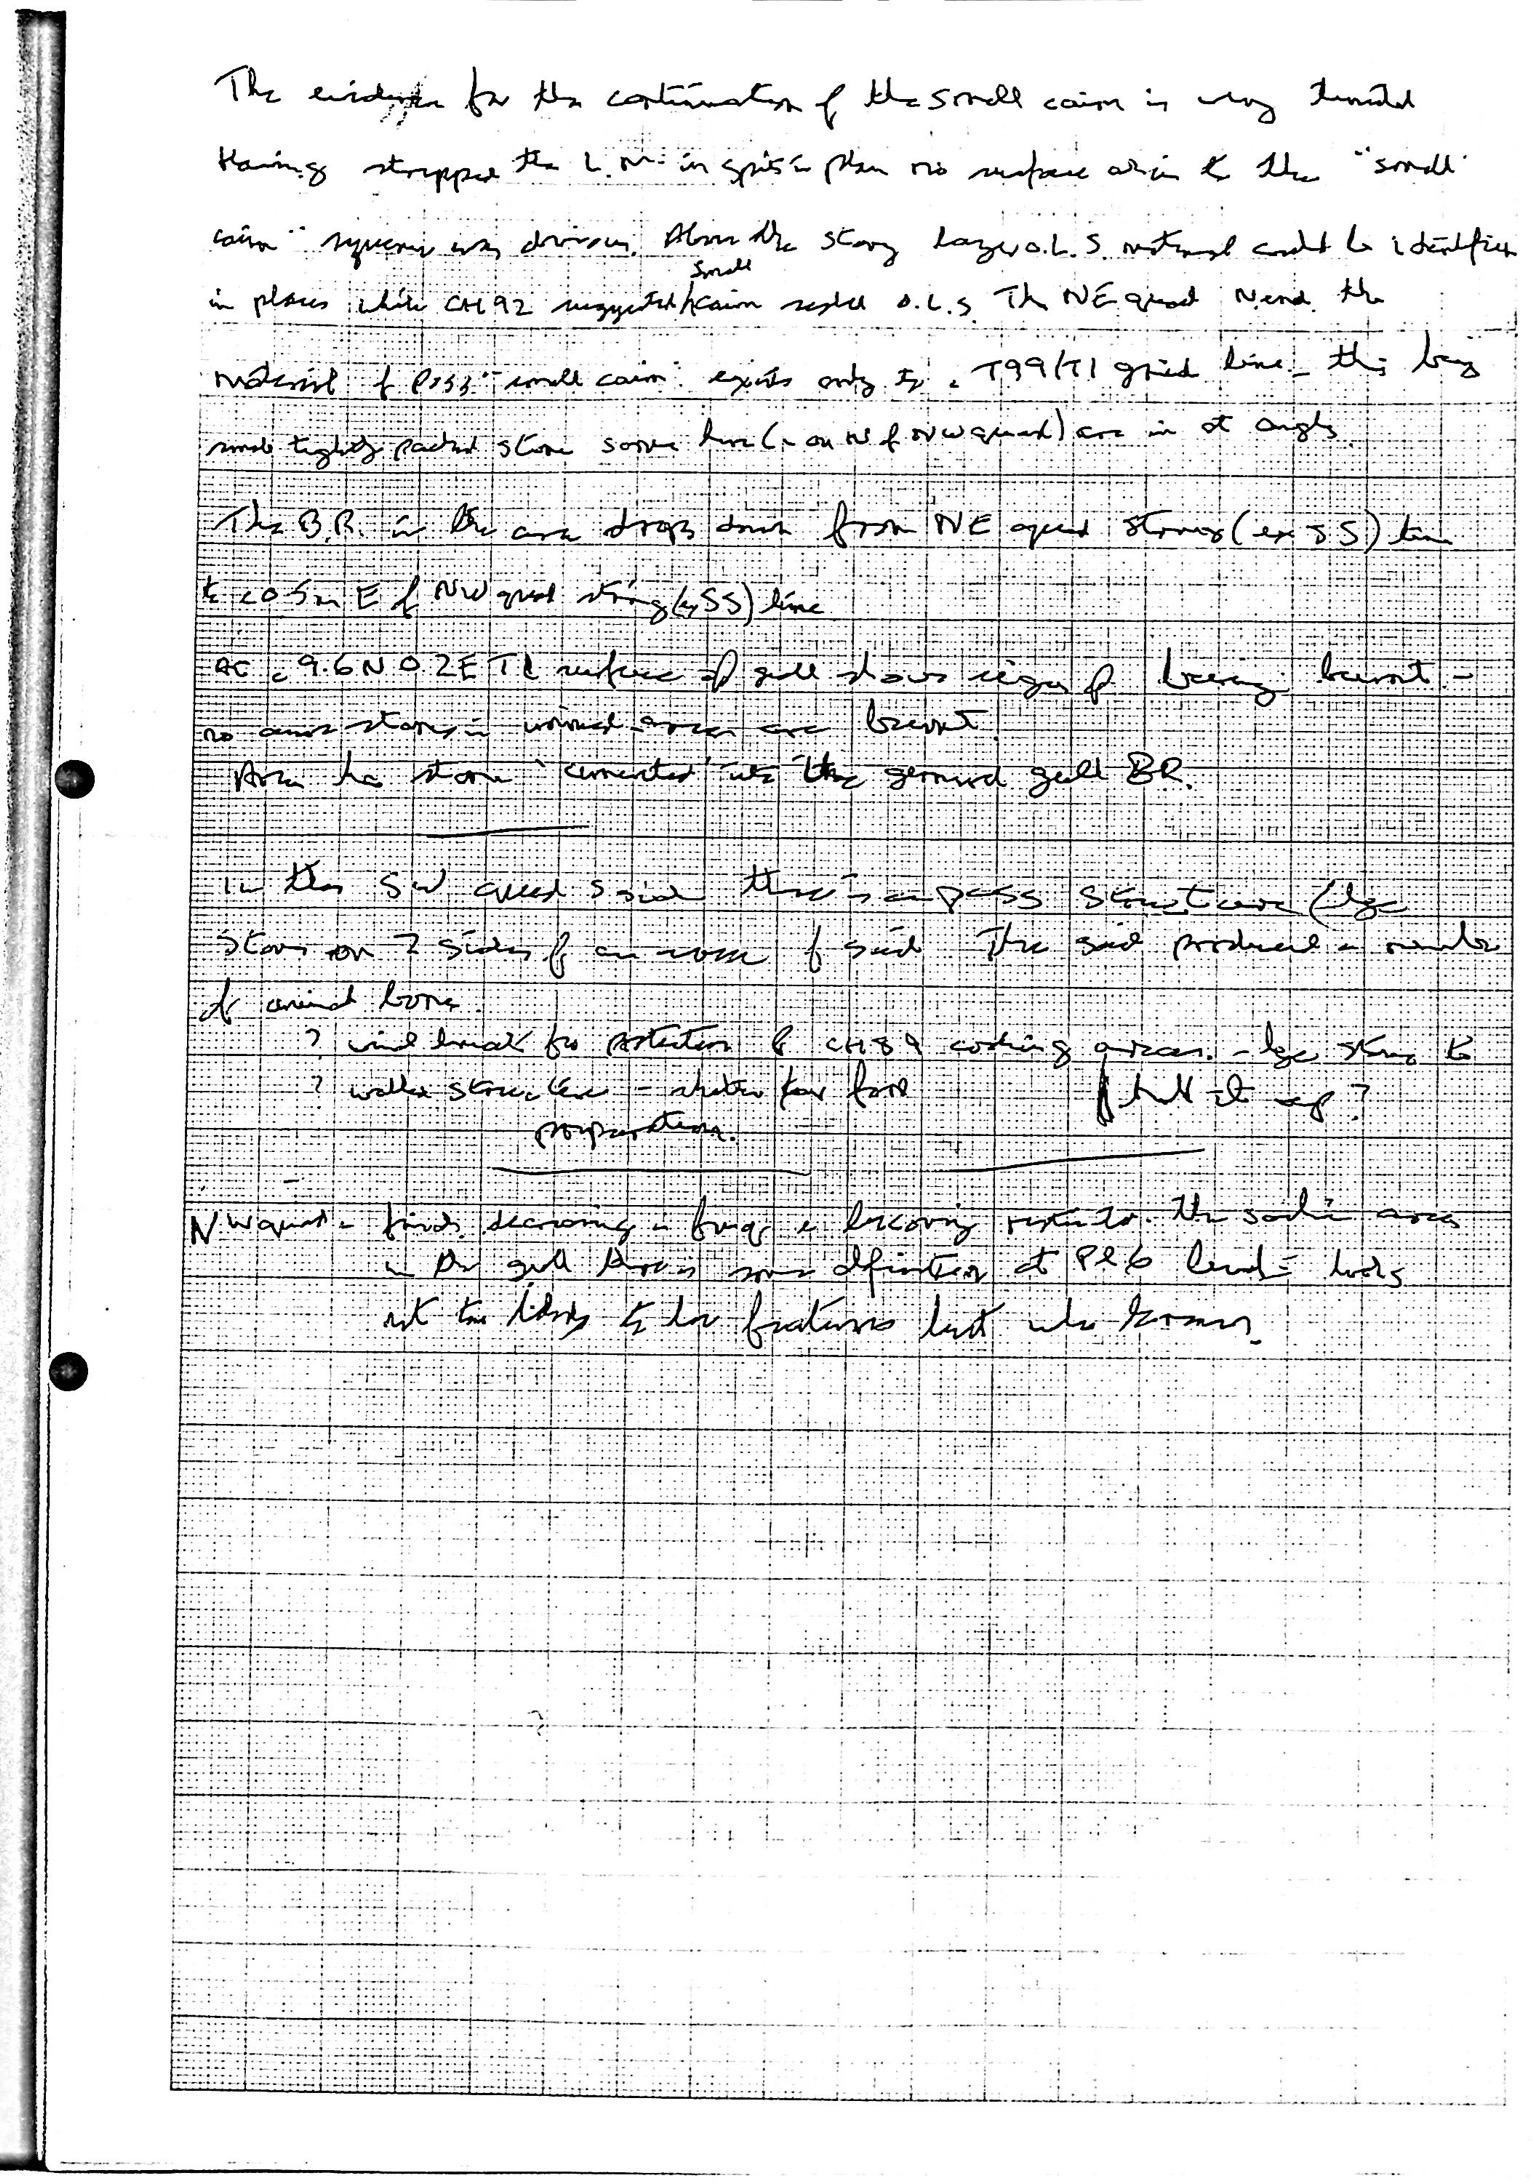 The evidence for the continuation of the small cairn is very
Having stripped the L.M. in spits in plan no surface akin to the "small
cairn" was obvious. Above the stony layer O.L.S. material could be identified
in places while CH92 suggested small cairn sealed O.L.S. The NE quad N end the
material of poss "small cairn" exists only to c T99/T1 grid line - this being
small tightly packed stone some here (c on N of NW quad) are in at angles.
The B.R. in the area drops down from NE quad string (ex SS) line
to c 0.5m E of NW quad string (ex SS) line
At c 9.6N 0.2E T1 surface of gull shows signs of being burnt -
no stones in area are burnt.
Area has stone "cemented" into the ground gull BR.
In the SW quad S side there is a poss structure (lge
stones on 2 sides of an area of soil The soil produced a number
of animal bones.
? wind break for protection of CH89 cooking areas. - lge stones to
? walled structure - shelter for food hold it up?
preparation.
NW quad - finds decreasing in freq & becoming restricted to the soil in areas
in the gull there is some definition at Pl6 level - looks
not too likely to be features but who knows.